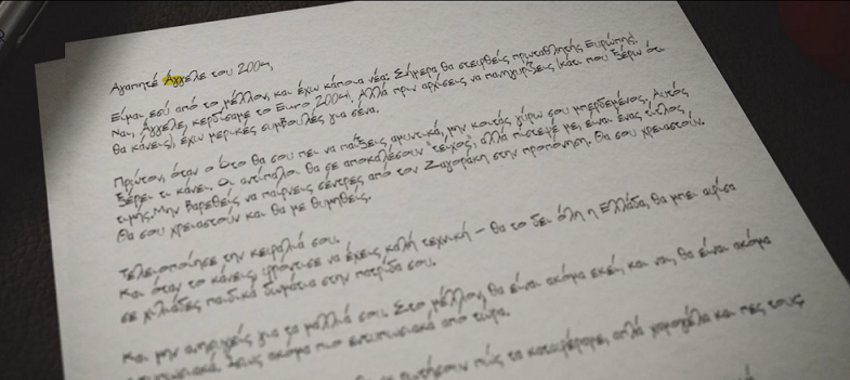 Αγαπητέ Άγγελε του 2004,
Είμαι εσύ από το μέλλον, και έχω κάποια νέα: Σήμερα θα στεφθείς πρωταθλητής Ευρώπης!
Ναι, Άγγελε, κερδίσαμε το Euro 2004!. Αλλά πριν αρχίσεις να πανηγυρίζεις (κάτι που ξέρω ότι
θα κάνεις), έχω μερικές συμβουλές για σένα.
Πρώτον, όταν ο Ότο θα σου πει να παίξεις αμυντικά, μην κοιτάς γύρω σου μπερδεμένος. Αυτός
ξέρει τι κάνει. Οι αντίπαλοι θα σε αποκαλέσουν "τείχος", αλλά πίστεψέ με, είναι ένας τίτλος
τιμής. Μην βαρεθείς να παίρνεις σέντρες από τον Ζαγοράκη στην προπόνηση. Θα σου χρειαστούν.
Θα σου χρειαστούν και θα με θυμηθείς.
Τελειοποίησε την κεφαλιά σου.
Και όταν το κάνεις, φρόντισε να έχεις καλή τεχνική – θα το δει όλη η Ελλάδα, θα μπει αφίσα
σε χιλιάδες παιδικά δωμάτια στην πατρίδα σου.
Και μην ανησυχείς για τα μαλλιά σου. Στο μέλλον, θα είναι ακόμα εκεί, και ναι, θα είναι ακόμα
ακόμα πιο εντυπωσιακά από τώρα.
πώς τα καταφέραμε, απλά χαμογέλα και πες τους